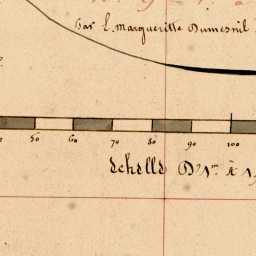 Par L. Margueritte Dumesnil
50 60 70 80 90 100
Echelle D'1m. à 1